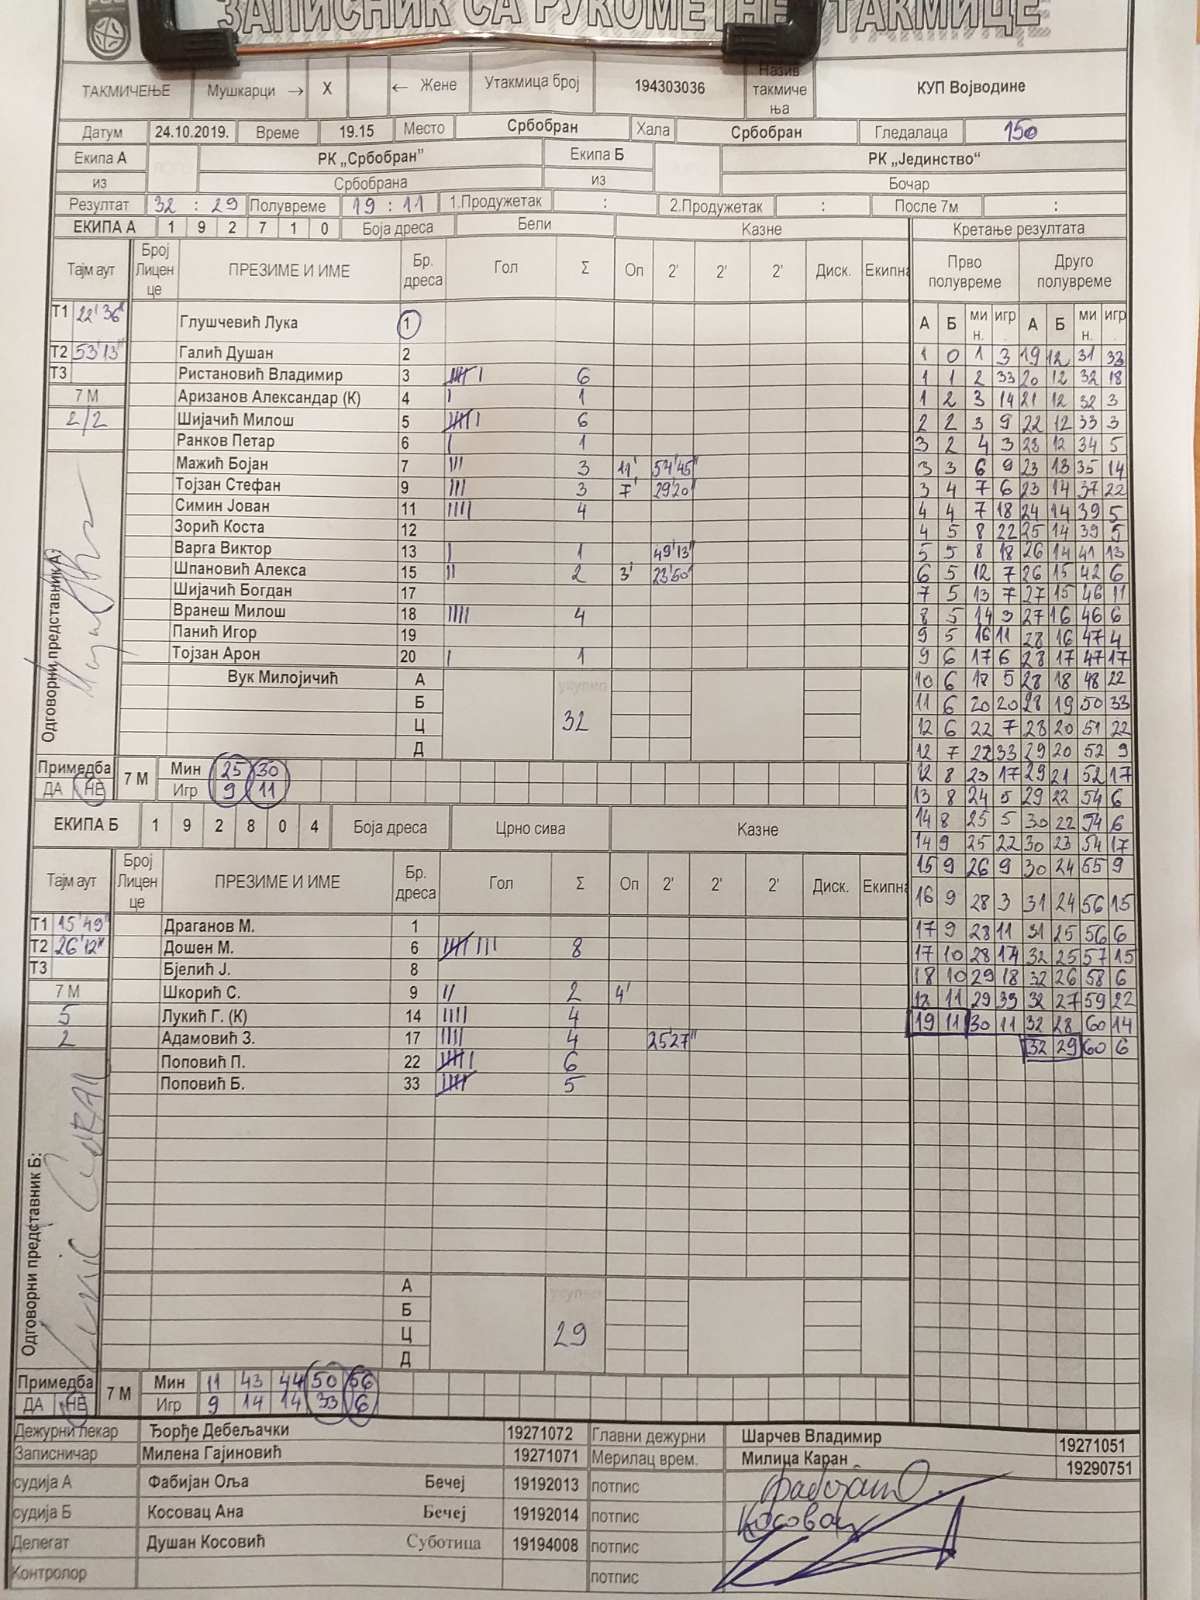 ЗАПИСНИК СА РУКОМЕТНЕ УТАКМИЦЕ
ТАКМИЧЕЊЕ Мушкарци → X ← Жене Утакмица број 194303036 Назив такмичења КУП Војводине
Датум 24.10.2019. Време 19.15 Место Србобран Хала Србобран Гледалаца 150
Екипа А РК „Србобран” Екипа Б РК „Јединство“
из Србобрана из Бочар
Резултат 32 : 29 Полувреме 19 : 11 1.Продужетак : 2.Продужетак : После 7м :
ЕКИПА А 1 9 2 7 1 0 Боја дреса Бели Казне Кретање резултата
Тајм аут Број Лиценце ПРЕЗИМЕ И ИМЕ Бр. дреса Гол Σ Оп 2' 2' 2' Диск. Екипна Прво полувреме Друго полувреме
А Б мин. игр. А Б мин. игр.
Т1 22'36" Глушчевић Лука 1
Т2 53'13" Галић Душан 2 1 0 1 3 19 12 31 33
Т3 Ристановић Владимир 3 6 1 1 2 33 20 12 32 18
7 М Аризанов Александар (К) 4 1 1 2 3 14 21 12 32 3
2/2 Шијачић Милош 5 6 2 2 3 9 22 12 33 3
Ранков Петар 6 1 3 2 4 3 23 12 34 5
Мажић Бојан 7 3 11' 54'45" 3 3 6 9 23 13 35 14
Тојзан Стефан 9 3 7' 29'20" 3 4 7 6 23 14 37 22
Симин Јован 11 4 4 4 7 18 24 14 39 5
Зорић Коста 12 4 5 8 22 25 14 39 5
Варга Виктор 13 1 49'13" 5 5 8 18 26 14 41 13
Шпановић Алекса 15 2 3' 23'50" 6 5 12 7 26 15 42 6
Шијачић Богдан 17 7 5 13 7 27 15 46 11
Вранеш Милош 18 4 8 5 14 3 27 16 46 6
Панић Игор 19 9 5 16 11 28 16 47 4
Тојзан Арон 20 1 9 6 17 6 28 17 47 17
Вук Милојичић А укупно 10 6 17 5 28 18 48 22
Б 32 11 6 20 20 28 19 50 33
Ц 12 6 22 7 28 20 51 22
Д 12 7 22 33 29 20 52 9
Одговорни представник А:
Примедба 7 М Мин 25 30 12 8 23 17 29 21 52 17
ДА НЕ Игр 9 11 13 8 24 5 29 22 54 6
ЕКИПА Б 1 9 2 8 0 4 Боја дреса Црно сива Казне 14 8 25 5 30 22 54 6
14 9 25 22 30 23 54 17
Тајм аут Број Лиценце ПРЕЗИМЕ И ИМЕ Бр. дреса Гол Σ Оп 2' 2' 2' Диск. Екипна 15 9 26 9 30 24 55 9
16 9 28 3 31 24 56 15
Т1 15'49" Драганов М. 1 17 9 28 11 31 25 56 6
Т2 26'12" Дошен М. 6 8 17 10 28 14 32 25 57 15
Т3 Бјелић Ј. 8 18 10 29 18 32 26 58 6
7 М Шкорић С. 9 2 4' 18 11 29 33 32 27 59 22
5 Лукић Г. (К) 14 4 19 11 30 11 32 28 60 14
2 Адамовић З. 17 4 25'27" 32 29 60 6
Поповић П. 22 6
Поповић Б. 33 5
Одговорни представник Б:
А укупно
Б
Ц 29
Д
Примедба 7 М Мин 11 43 44 50 56
ДА НЕ Игр 9 14 14 33 6
Дежурни лекар Ђорђе Дебељачки 19271072 Главни дежурни Шарчев Владимир 19271051
Записничар Милена Гајиновић 19271071 Мерилац врем. Милица Каран 19290751
судија А Фабијан Оља Бечеј 19192013 потпис
судија Б Косовац Ана Бечеј 19192014 потпис Косовац
Делегат Душан Косовић Суботица 19194008 потпис
Контролор потпис